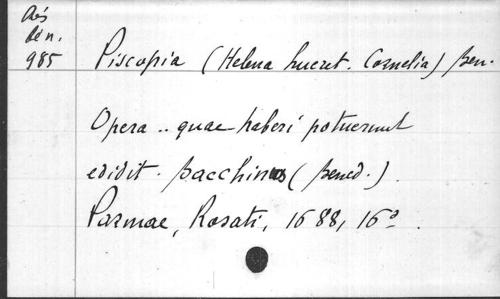 Rés
lén.
985
Piscopia (Helena lucret. Cornelia) Ben.
Opera .. quae haberi potuerunt
edidit. Bacchinus (Bened.).
Parmae, Rosati, 1688, 16°.